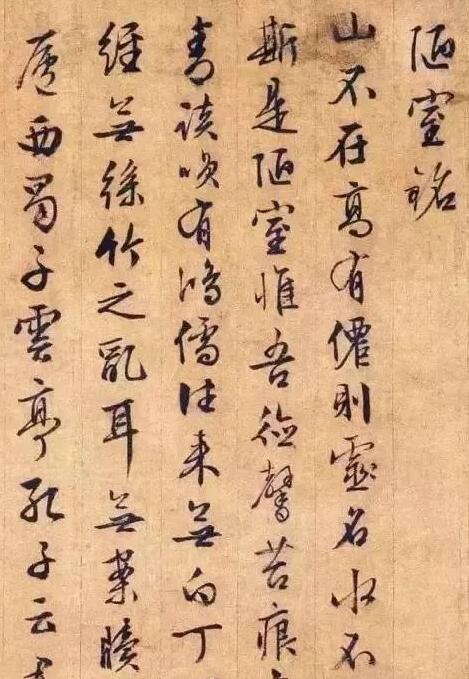 陋室銘
山不在高有僊則靈名水不
斯是陋室惟吾德馨苔痕
青談唉有鴻儒往来無白丁
經無絲竹之亂耳無案牘
廬西蜀子雲亭孔子云